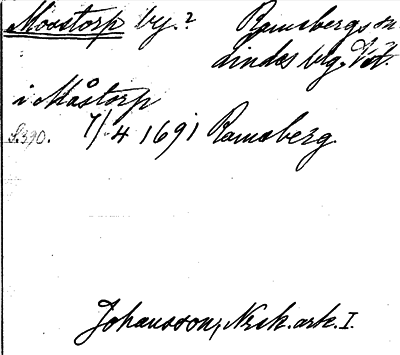 Moostorp by.? Ramsbergs sn
Lindes blg, Vstm.
i Måstorp
S.390. 7/4 1691 Ramsberg.
Johansson, Nsk. ark. I.